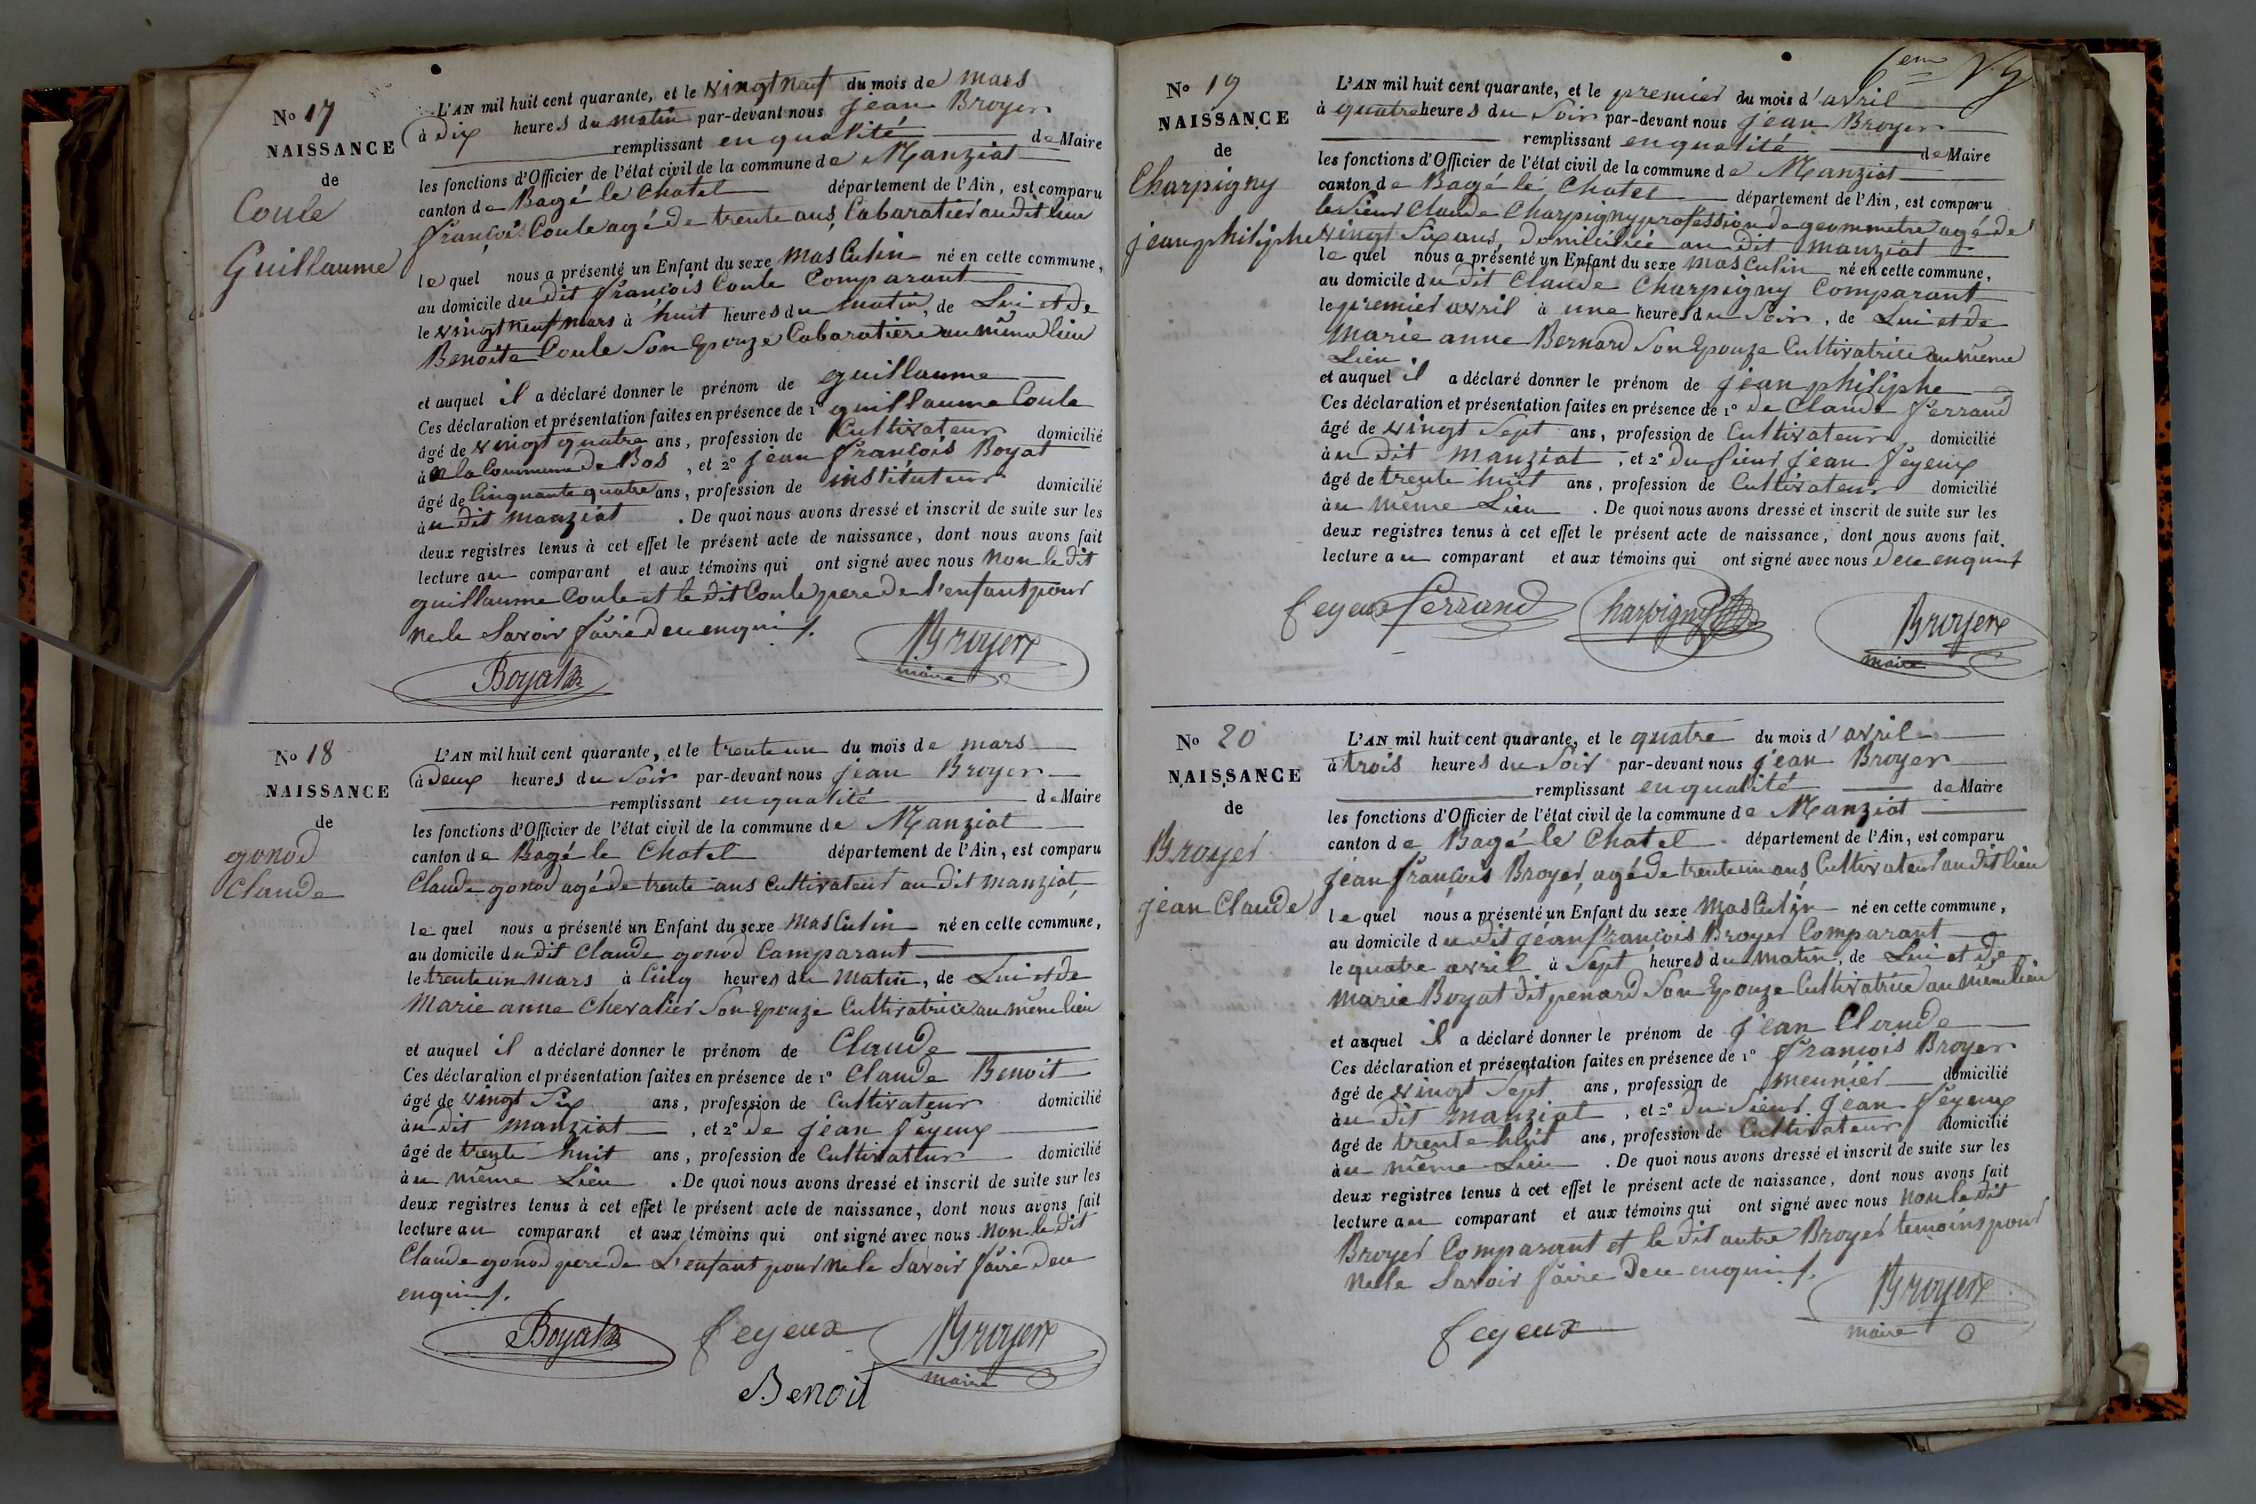 No 17
NAISSANCE
de
Coule
Guillaume
L'AN mil huit cent quarante, et le vingt neuf du mois de mars
à dix heures du matin par-devant nous jean Broyer
remplissant en qualité de Maire
les fonctions d'Officier de l'état civil de la commune de Manziat
canton de Bagé le Chatel département de l'Ain, est comparu
françois Coule agé de trente ans, Cabaratier au dit lieu
lequel nous a présenté un Enfant du sexe masculin né en cette commune,
au domicile du dit françois Coule Comparant
le vingt neuf mars à huit heures du matin, de Lui et de
Benoite Coule Son Epouze Cabaratiere au même lieu
et auquel il a déclaré donner le prénom de guillaume
Ces déclaration et présentation faites en présence de 1° guillaume Coule
âgé de vingt quatre ans, profession de Cultivateur domicilié
à la Commune de Bos, et 2° jean françois Boyat
âgé de Cinquante quatre ans, profession de instituteur domicilié
au dit manziat. De quoi nous avons dressé et inscrit de suite sur les
deux registres tenus à cet effet le présent acte de naissance, dont nous avons fait
lecture au comparant et aux témoins qui ont signé avec nous Non le dit
guillaume Coule et le dit Coule pere de l'enfant pour
ne le Savoir faire deu enquis.
Boyat
Broyer
maire
No 18
NAISSANCE
de
gonod
Claude
L'AN mil huit cent quarante, et le trente un du mois de mars
à deux heures du Soir par-devant nous jean Broyer
remplissant en qualité de Maire
les fonctions d'Officier de l'état civil de la commune de Manziat
canton de Bagé le Chatel département de l'Ain, est comparu
Claude gonod agé de trente ans cultivateur au dit manziat
lequel nous a présenté un Enfant du sexe masculin né en cette commune,
au domicile du dit Claude gonod Comparant
le trente un mars à Cinq heures du Matin, de Lui et de
Marie anne Chevalier Son Epouze Cultivatrice au même lieu
et auquel il a déclaré donner le prénom de Claude
Ces déclaration et présentation faites en présence de 1° Claude Benoit
âgé de vingt Six ans, profession de Cultivateur domicilié
au dit Manziat, et 2° de jean feyeux
âgé de trente huit ans, profession de Cultivateur domicilié
au même Lieu. De quoi nous avons dressé et inscrit de suite sur les
deux registres tenus à cet effet le présent acte de naissance, dont nous avons fait
lecture au comparant et aux témoins qui ont signé avec nous Non le dit
Claude gonod pere de L'enfant pour ne le Savoir faire deu
enquis.
Boyat
feyeux
Broyer
maire
Benoit
6eme
No 19
NAISSANCE
de
Charpigny
jean philiphe
L'AN mil huit cent quarante, et le premier du mois d'avril
à quatre heures du Soir par-devant nous jean Broyer
remplissant en qualité de Maire
les fonctions d'Officier de l'état civil de la commune de Manziat
canton de Bagé le Chatel département de l'Ain, est comparu
le Sieur Claude Charpigny profession de geommetre agé de
vingt Six ans, domicilié au dit manziat
lequel nous a présenté un Enfant du sexe masculin né en cette commune,
au domicile du dit Claude Charpigny Comparant
le premier avril à une heures du Soir, de Lui et de
Marie anne Bernard Son Epouze Cultivatrice au même
Lieu
et auquel il a déclaré donner le prénom de jean philiphe
Ces déclaration et présentation faites en présence de 1° de Claude ferrand
âgé de vingt Sept ans, profession de Cultivateur domicilié
au dit manziat, et 2° du Sieur jean feyeux
âgé de trente huit ans, profession de Cultivateur domicilié
au même Lieu. De quoi nous avons dressé et inscrit de suite sur les
deux registres tenus à cet effet le présent acte de naissance, dont nous avons fait
lecture au comparant et aux témoins qui ont signé avec nous deu enquis
feyeux ferrand Charpigny
Broyer
maire
No 20
NAISSANCE
de
Broyer
jean Claude
L'AN mil huit cent quarante, et le quatre du mois d'avril
à trois heures du Soir par-devant nous jean Broyer
remplissant en qualité de Maire
les fonctions d'Officier de l'état civil de la commune de Manziat
canton de Bagé le Chatel département de l'Ain, est comparu
jean françois Broyer, agé de trente un ans Cultivateur au dit lieu
lequel nous a présenté un Enfant du sexe masculin né en cette commune,
au domicile du dit jean françois Broyer Comparant
le quatre avril à Sept heures du matin, de Lui et de
marie Boyat dit penard Son Epouze Cultivatrice au même lieu
et auquel il a déclaré donner le prénom de jean Claude
Ces déclaration et présentation faites en présence de 1° françois Broyer
âgé de vingt Sept ans, profession de meunier domicilié
au dit manziat, et 2° du Sieur jean feyeux
âgé de trente huit ans, profession de Cultivateur domicilié
au même Lieu. De quoi nous avons dressé et inscrit de suite sur les
deux registres tenus à cet effet le présent acte de naissance, dont nous avons fait
lecture au comparant et aux témoins qui ont signé avec nous Non le dit
Broyer Comparant et le dit autre Broyer temoins pour
ne le Savoir faire deu enquis.
feyeux
Broyer
maire